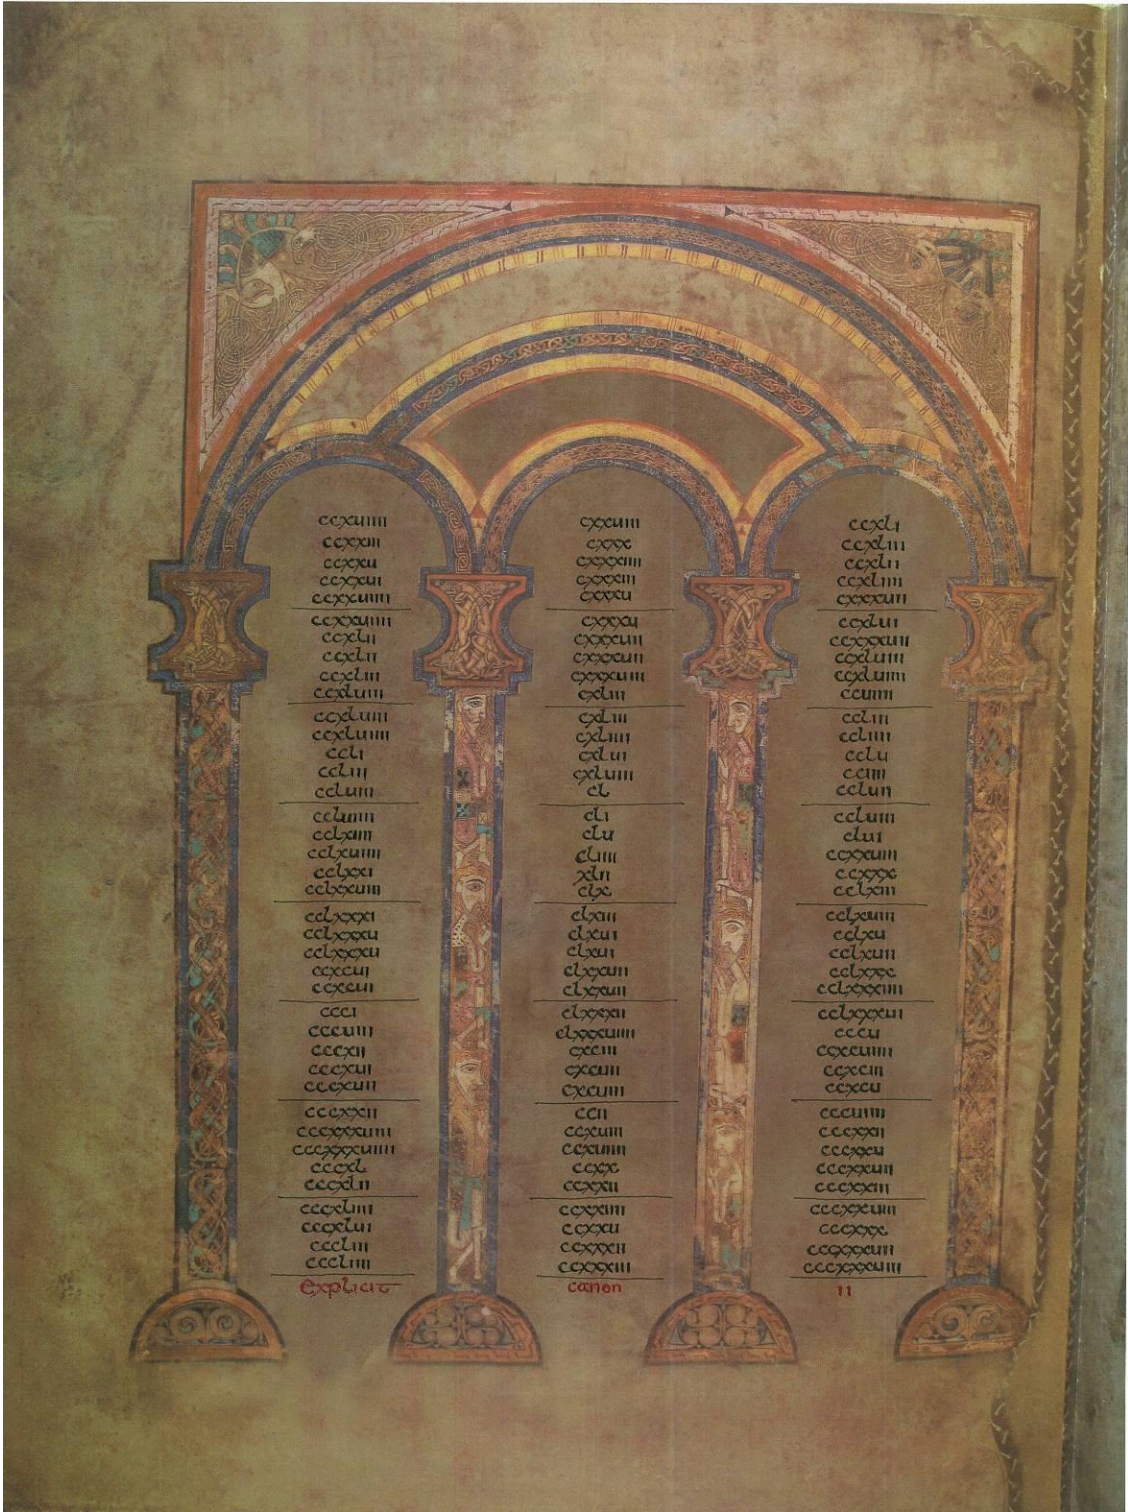 ccxuiiii
ccxxiii
ccxxu
ccxxui
ccxxuiiii
ccxxuiiii
ccxlii
ccxlii
ccxliii
ccxluiii
ccxluiii
ccxluiiii
ccli
ccliii
ccluiii
ccluiiii
cclxiiii
cclxuiiii
cclxxi
cclxxuiii
cclxxxi
cclxxxu
cclxxxu
ccxcui
ccxcui
ccci
cccuiii
cccxii
cccxui
cccxuii
cccxxii
cccxxxuiii
cccxxxuiiii
cccxl
cccxlii
cccxliiii
cccxlui
cccliii
cccliiii
explicit
cxxuiii
cxxx
cxxxiiii
cxxxiii
cxxxu
cxxxu
cxxxuii
cxxxuii
cxxxuiii
cxliii
cxliii
cxliiii
cxlui
cxluiii
cl
cli
clu
cliiii
xlii
clx
clxiii
clxui
clxui
clxxuii
clxxuii
clxxxii
clxxxuiiii
cxciii
cxcuii
cxcuiii
ccii
ccxuiii
ccxuiiii
ccxx
ccxxii
ccxxiiii
ccxxu
ccxxxii
ccxxxiii
canon
ccxli
ccxliii
ccxlii
ccxliiii
cxxxuii
ccxlui
ccxxxuiii
ccxluiii
ccxluiii
ccuiiii
ccliii
ccliiii
cclu
cciiii
ccluii
ccluiii
clui
ccxxuiii
ccxxx
cclxiii
cclxuiii
cclxu
cclxuii
cclxxx
cclxxxiiii
cclxxxui
cccu
ccxcuiiii
ccxciii
ccxcu
cccuiiii
cccxxii
cccxxu
cccxxuii
cccxxiii
cccxxuiii
cccxxx
cccxxxuii
cccxxxuiii
ii